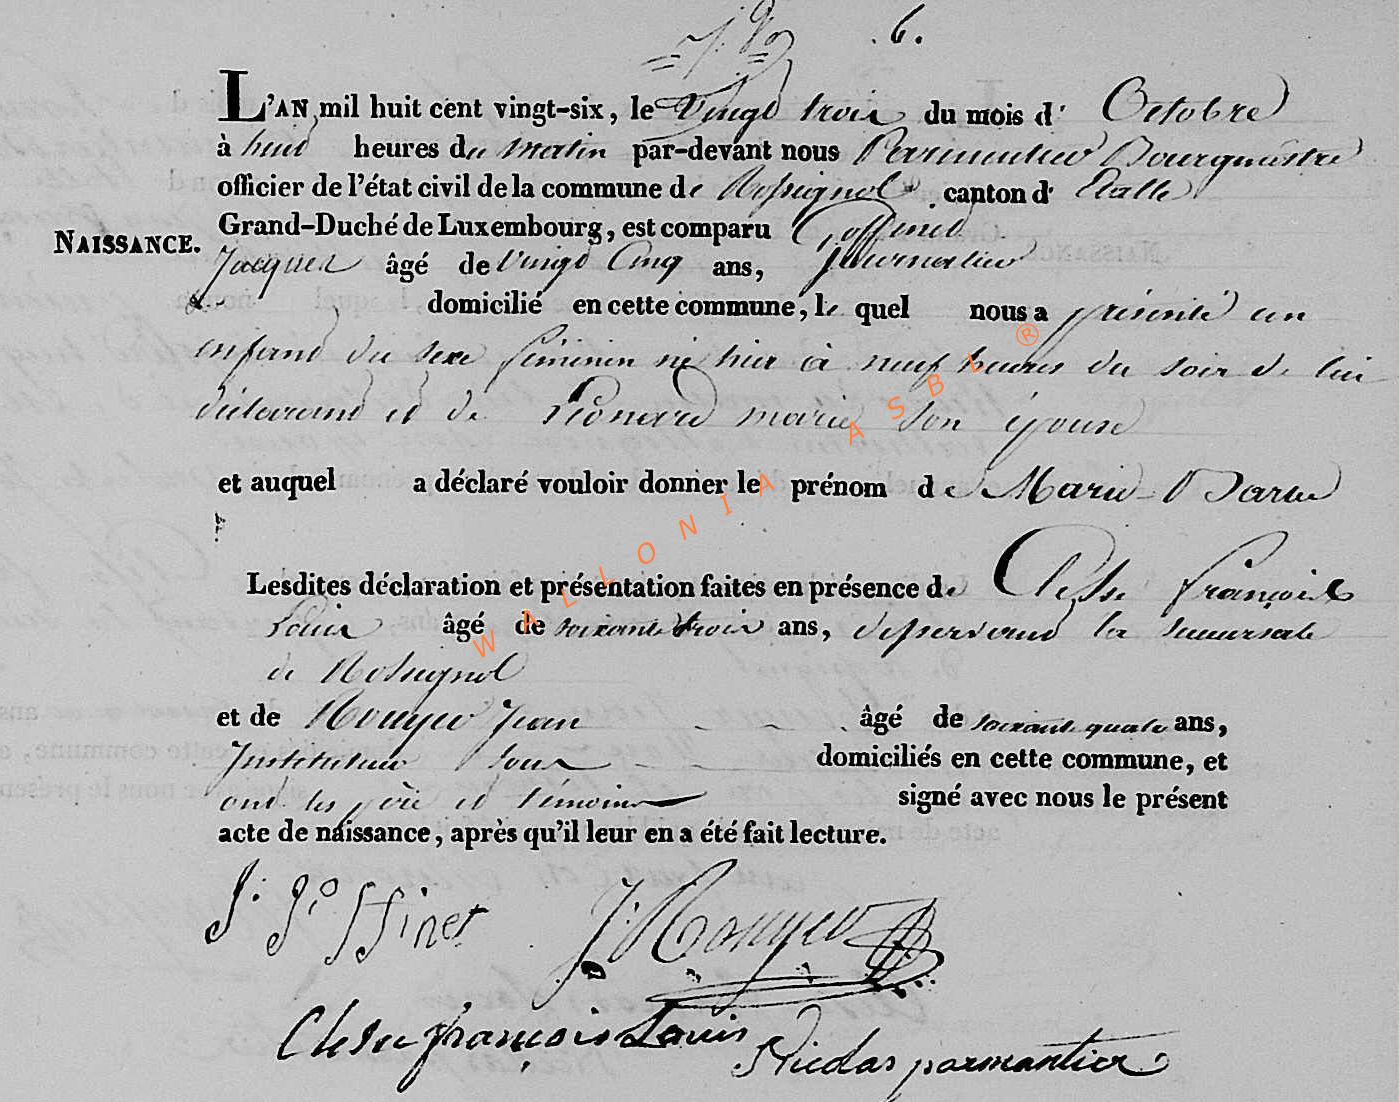 .6.
L'AN mil huit cent vingt-six, le Vingt trois du mois d' Octobre
à huit heures du Matin par-devant nous Parmentier Bourgmestre
officier de l'état civil de la commune de Rossignol canton d' Etalle
Grand-Duché de Luxembourg, est comparu Goffinet
NAISSANCE.
Jacques âgé de Vingt Cinq ans, Journalier
domicilié en cette commune, le quel nous a présenté un
enfant du sexe féminin né hier à neuf heures du soir de lui
déclarant et de Léonard marie son épouse
et auquel a déclaré vouloir donner le prénom de Marie-Barbe
Lesdites déclaration et présentation faites en présence de Clesse françois
Louis âgé de soixante trois ans, desservant la succursale
de Rossignol
et de Rouyer Jean âgé de soixante quatre ans,
Instituteur tous domiciliés en cette commune, et
ont les père et témoins signé avec nous le présent
acte de naissance, après qu'il leur en a été fait lecture.
J: Goffinet J: Rouyer
Clesse françois Louis Nicolas parmantier
WALLONIA ASBL ®